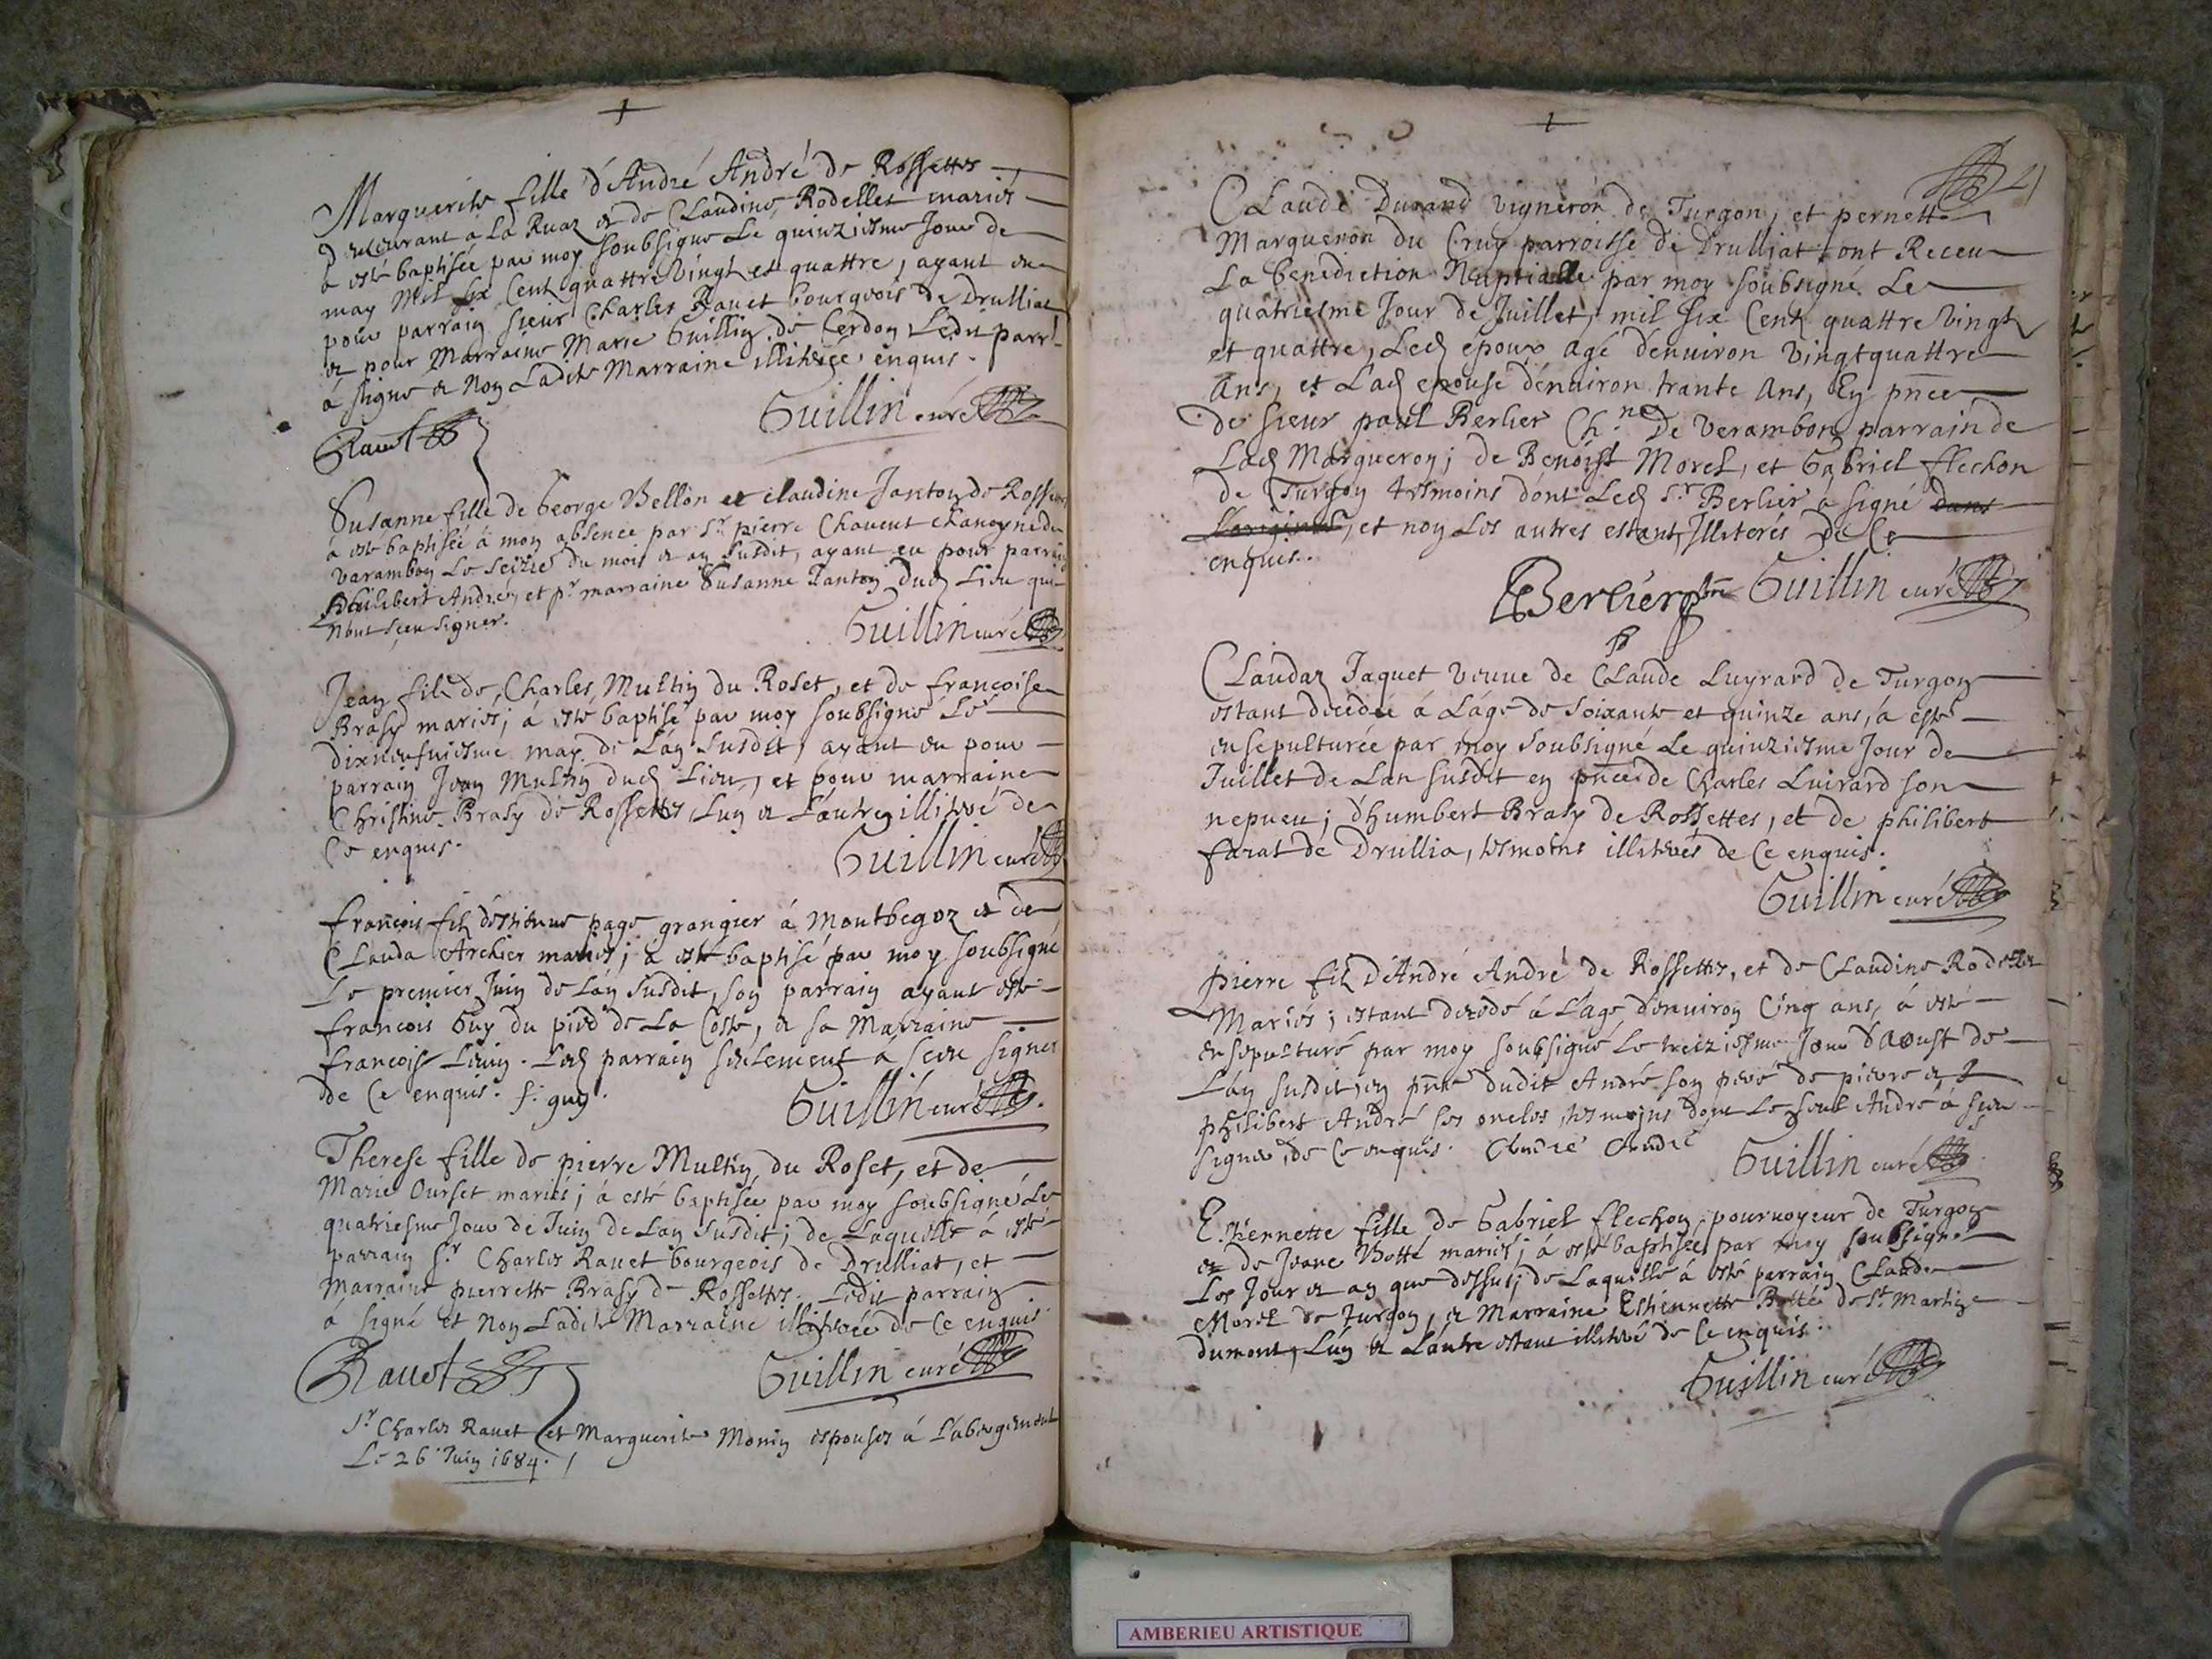 Marguerite fille d'André André de Rossettes
demeurant à La Ruaz et de Claudine Rodellet mariés
à esté baptisée par moy soubsigné Le quinziesme Jour de
may Mil Six Cent quattre Vingt et quattre, ayant eu
pour parrain sieur Charles Rauet bourgeois de Drulliat
et pour Marraine Marie Guillin de Cerdon, Ledit parr.
à signé et Non Ladite Marraine illiterée enquis.
Guillin curé
Rauet
Susanne fille de George Bellon et claudine Janton de Rossettes
à esté baptisée à mon absence par Sr. pierre Chauent chanoyne de
Varambon Le seizie du mois et an Susdit, ayant eu pour parrain
Philibert André, et pr marraine Susanne Janton dud Lieu qui
n'ont sceu signer.
Guillin curé
Jean fils de Charles Multin du Roset, et de francoise
Brasy mariés; à esté baptisé par moy soubsigné Le
dixneufuiesme may de L'an Susdit, ayant eu pour
parrain Jean Multin dud Lieu, et pour marraine
Christine Brasy de Rossettes, L'un et L'autre illiteré de
Ce enquis.
Guillin curé
francois filz d'estienne page grangier à Montbegoz et de
Clauda Archier mariés; à esté baptisé par moy soubsigné
Le premier Juin de L'an Susdit, son parrain ayant esté
francois Guy du pied de La Coste, et sa Marraine
francoise Liuin. Led parrain seulement à sceu signer
de Ce enquis. f. guy.
Guillin curé
Therese fille de pierre Multin, du Roset, et de
Marie Ourset mariés; à esté baptisée par moy soubsigné Le
quatriesme Jour de Juin de Lan Susdit; de Laquelle à esté
parrain Sr. Charles Rauet bourgeois de Drulliat, et
Marraine pierrette Brasy de Rossettes. Ledit parrain
à signé et Non Ladite Marraine illiterée de Ce enquis
Rauet
Guillin curé
Sr. Charles Rauet et Marguerite Monin espousés à L'abergement
Le 26 Juin 1684.
4
Claude Durand Vigneron de Turgon, et pernette
Margueron du Cruy parroisse de Drulliat, ont Receu
La benediction Nuptialle par moy soubsigné Le
quatriesme Jour de Juillet, mil Six Cent quattre Vingt
et quattre, Led epoux agé d'enuiron Vingtquattre
Ans, et Lad epouse d'enuiron trante Ans, En pñce
de sieur paul Berlier Ch.ne De Verambon parrain de
Lad Margueron; de Benoist Morel, et Gabriel flechon
de Turgon tesmoins dont Led Sr. Berlier à signé dans
L'original, et non Les autres estant Illiterés De Ce
enquis.
Berlier pbre
Guillin curé
Claudaz Jaquet Veuue de Claude Luyrard de Turgon
estant decedée à L'age de Soixante et quinze ans, à esté
ensepulturée par moy Soubsigné Le quinziesme Jour de
Juillet de Lan susdit en pñce de Charles Luirard son
nepueu; d'humbert Brasy de Rossettes, et de philibert
farat de Drullia, tesmoins illiterés de Ce enquis.
Guillin curé
pierre filz D'André André de Rossettes, et de Claudine Rodellet
Mariés; estant decedé à L'age d'enuiron Cinq ans, à esté
ensepulturé par moy soubsigné Le treiziesme Jour d'Aoust de
L'an susdit, en pñce dudit André son pere de pierre et
philibert André ses oncles, tesmoins dont Le seul André à sceu
signer, de Ce enquis. André André
Guillin curé
Estiennette fille de Gabriel flechon, pouruoyeur de Turgon
et de Jeane Botté mariés; à esté baptisée par moy soubsigné
Les Jour et an que dessus; de Laquelle à esté parrain Claude
Morel de Turgon, et Marraine Estiennette Botté de St Martin
dumont, L'un et L'autre estant illiteré de Ce enquis.
Guillin curé
AMBERIEU ARTISTIQUE